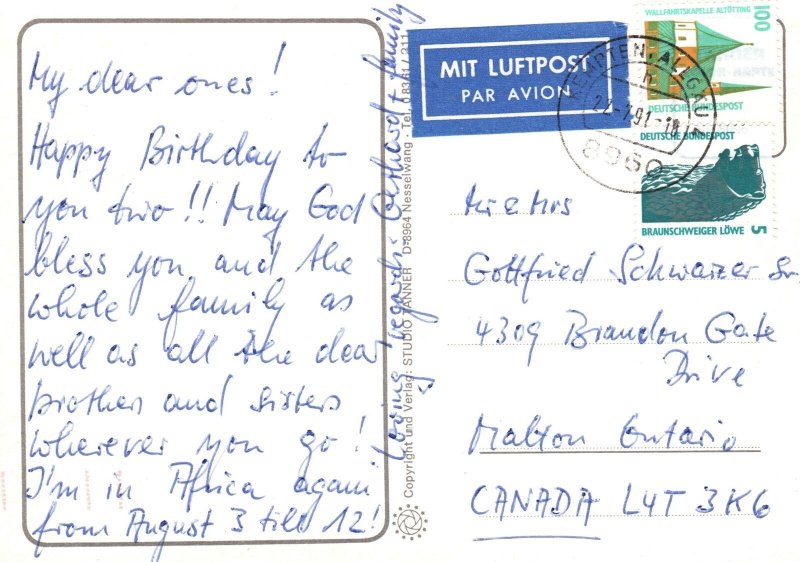 My dear ones!
Happy Birthday to
you two!! May God
bless you and the
whole family as
well as all the dear
brothers and sisters
wherever you go!
I'm in Africa again
from August 3 till 12!
Loving regards: Gerhard + family
Copyright und Verlag: STUDIO TANNER D-8964 Nesselwang · Tel. 08361/311
MIT LUFTPOST
PAR AVION
KEMPTEN, ALLGÄU
22.-7.91-
8960
WALLFAHRTSKAPELLE ALTÖTTING
100
DEUTSCHE BUNDESPOST
DEUTSCHE BUNDESPOST
BRAUNSCHWEIGER LÖWE 5
Mr & Mrs
Gottfried Schwarzer Sr.
4309 Brandon Gate
Drive
Malton Ontario
CANADA L4T 3K6